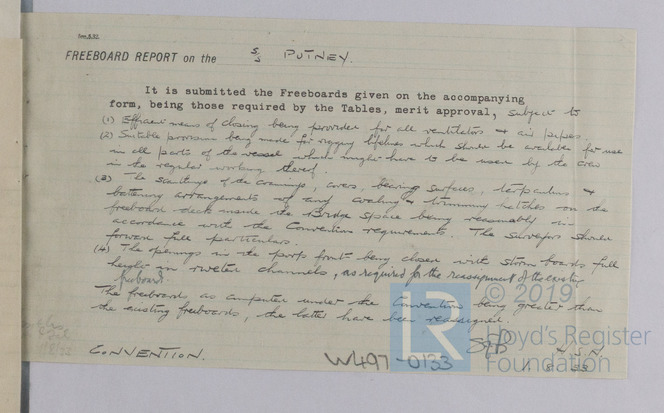 FREEBOARD REPORT on the S/S PUTNEY.
It is submitted the Freeboards given on the accompanying
form, being those required by the Tables, merit approval, subject to
(1) Efficient means of closing being provided for all ventilators & air pipes.
(2) Suitable provision being made for rigging lifelines which should be available for use
in all parts of the vessel which might have to be used by the crew
in the regular working thereof.
(3) The scantlings of the coamings, covers, bearing surfaces, tarpaulins &
battening arrangements of any coaling & trimming hatches on the
freeboard deck inside the Bridge space being reasonably in
accordance with the Convention requirements. The Surveyors should
forward full particulars.
(4) The openings in the poop front being closed with storm boards full
height in riveted channels, as required for the reassignment of the existing
freeboard.
The freeboards as computed under the Convention being greater than
the existing freeboards, the latter have been reassigned.
CONVENTION.
W497-0133
© 2019
Lloyd's Register
Foundation